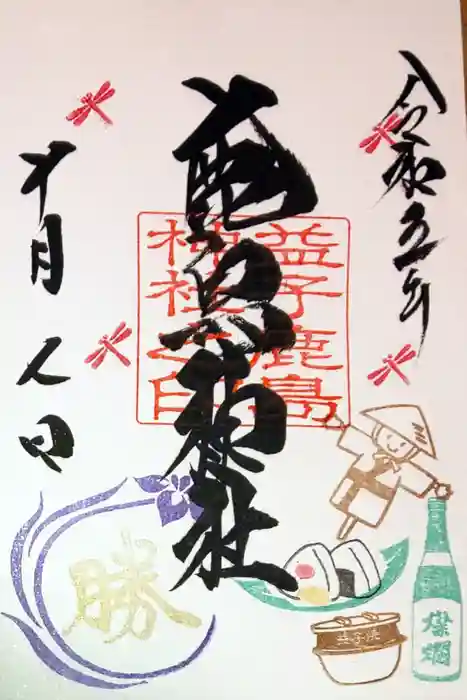 令和五年
鹿島神社
益子鹿島
神社之印
十月八日
勝
益子焼
燦爛